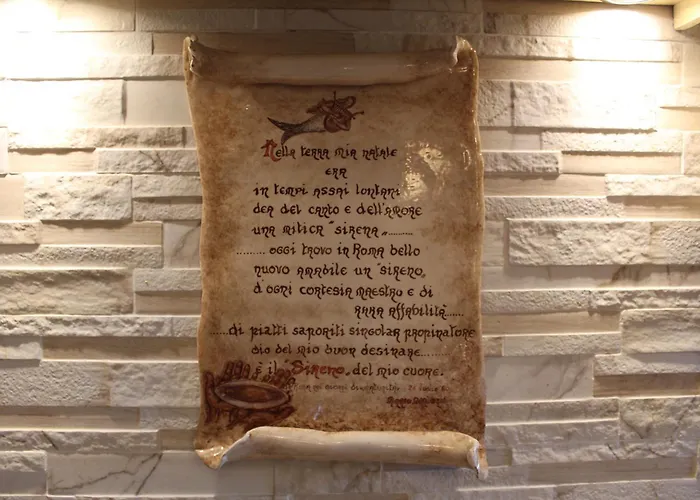 Nella terra mia natale
era
in tempi assai lontani
dea del canto e dell'amore
una mitica "sirena„..........
......... oggi trovo in Roma bello
nuovo amabile un "sireno„
d'ogni cortesia maestro e di
rara affabilità......
......di piatti saporiti singolar propinatore
dio del mio buon desinare.......
è il "Sireno„ del mio cuore.